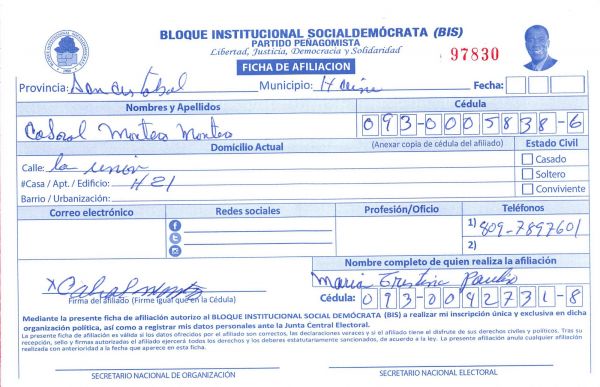 BLOQUE INSTITUCIONAL SOCIALDEMÓCRATA (BIS)
PARTIDO PEÑAGOMISTA
Libertad, Justicia, Democracia y Solidaridad
97830
FICHA DE AFILIACION
Provincia: San Cristobal Municipio: Haina Fecha:
Nombres y Apellidos Cédula
Montero Montero 093-0005838-6
Domicilio Actual (Anexar copia de cédula del afiliado) Estado Civil
Calle: la union Casado
#Casa / Apt. / Edificio: #21 Soltero
Barrio / Urbanización: Conviviente
Correo electrónico Redes sociales Profesión/Oficio Teléfonos
1) 809-7897601
2)
Nombre completo de quien realiza la afiliación
Maria Cristina
Firma del afiliado (Firme igual que en la Cédula) Cédula: 093-0042731-8
Mediante la presente ficha de afiliación autorizo al BLOQUE INSTITUCIONAL SOCIAL DEMÓCRATA (BIS) a realizar mi inscripción única y exclusiva en dicha
organización política, así como a registrar mis datos personales ante la Junta Central Electoral.
La presente ficha de afiliación es válida si los datos ofrecidos por el afiliado son correctos, las declaraciones veraces y si el afiliado tiene el disfrute de sus derechos civiles y políticos. Tras su
recepción, sello y firmas autorizadas el afiliado ejercerá todos los derechos y los deberes estatutariamente sancionados, de acuerdo a la ley. La presente afiliación anula cualquier afiliación
realizada con anterioridad a la fecha que aparece en esta ficha.
SECRETARIO NACIONAL DE ORGANIZACIÓN SECRETARIO NACIONAL ELECTORAL